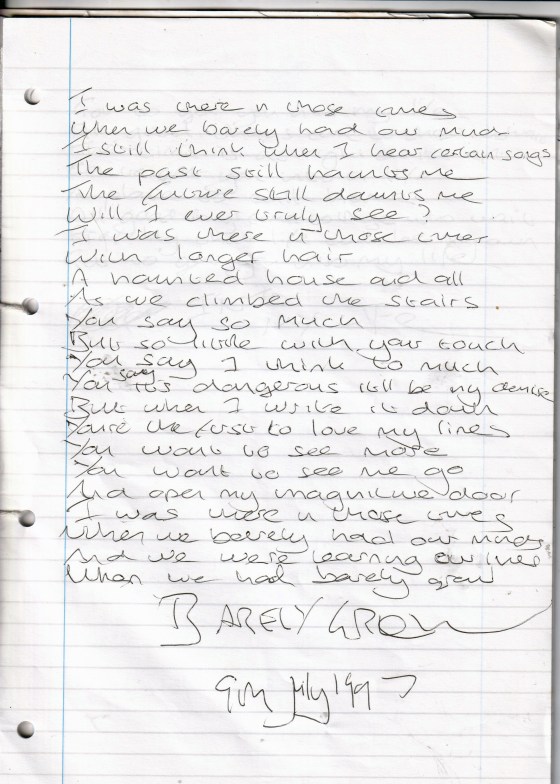 I was there in those times
When we barely had our minds
I still think when I hear certain songs
The past still haunts me
The future still daunts me
Will I ever truly see?
I was there in those times
With longer hair
A haunted house and all
As we climbed the stairs
You say so much
But so little with your touch
You say I think to much
You say its dangerous itll be my demise
But when I write it down
Youre the first to love my lines
You want to see more
You want to see me go
And open my imaginative door
I was there in those times
When we barely had our minds
And we were learning our lines
When we had barely grown
BARELY GROWN
9th July 1997